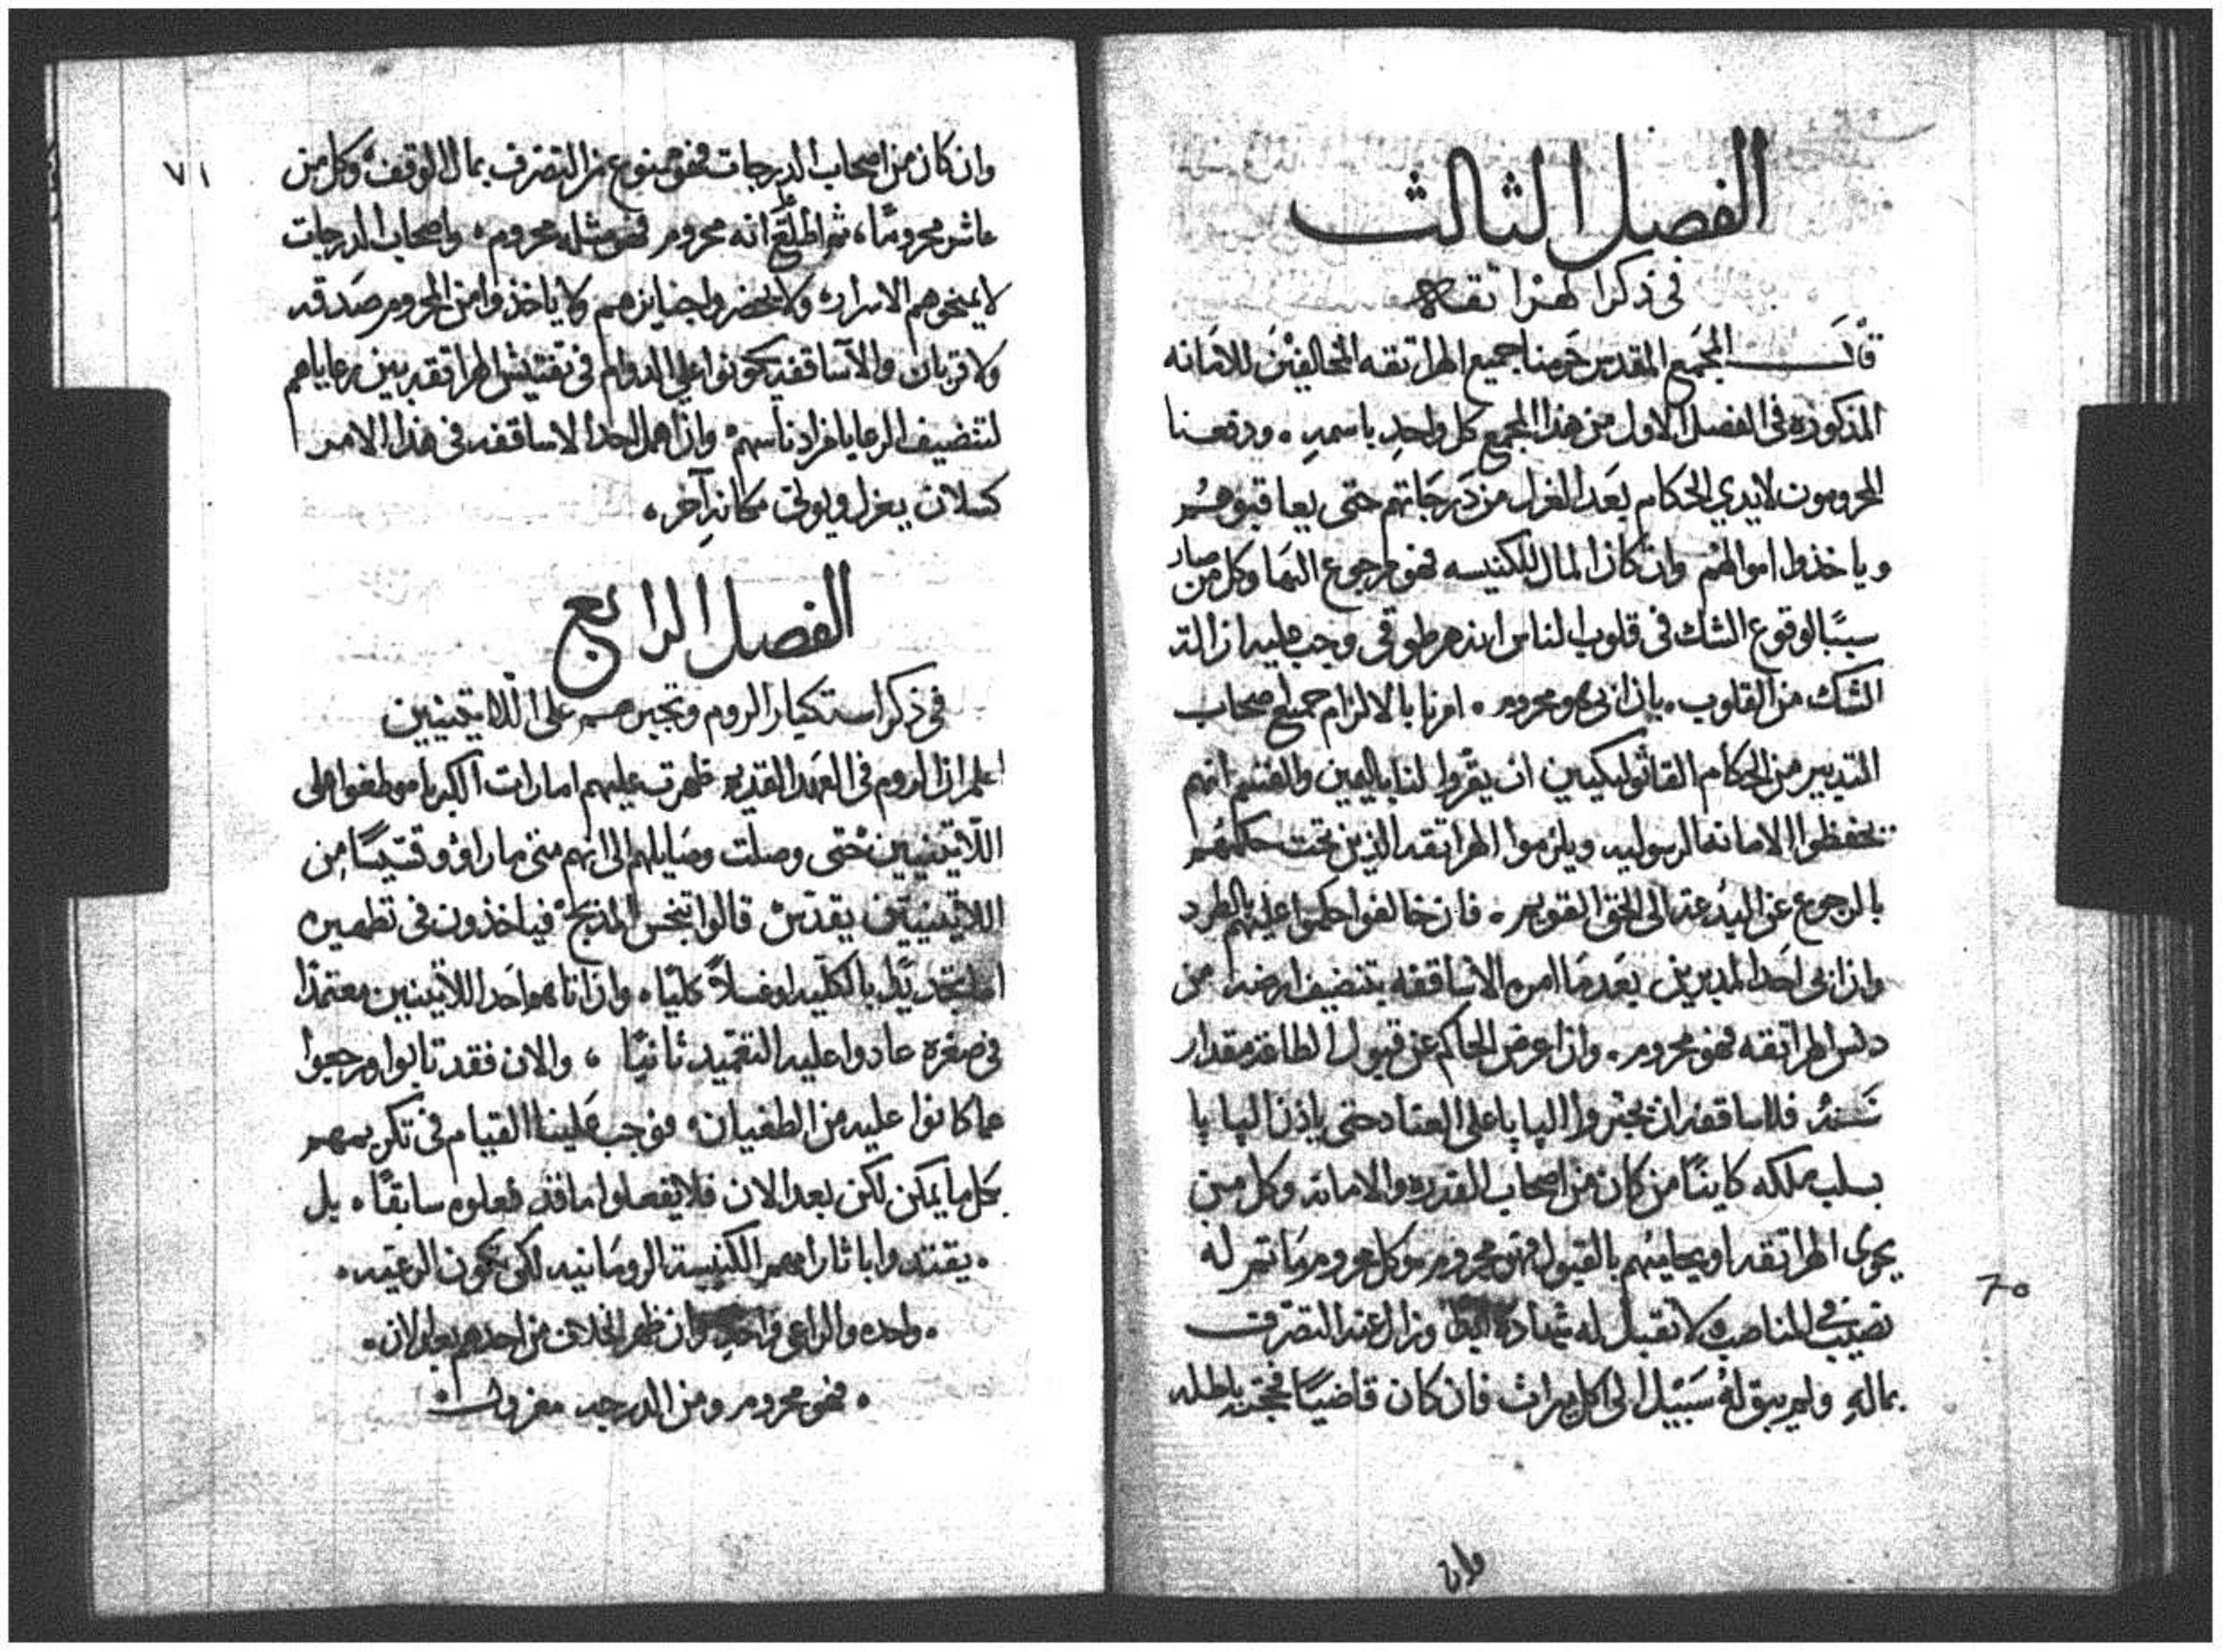 الفصل الثالث
في ذكر الهراتقه
قال المجمع المقدس حرمنا جميع الهراتقه المخالفين للامانه
المذكوره في الفصل الاول من هذا المجمع كل واحد باسمه . ودفعنا
المحرومون لايدي الحكام بعد العزل من درجاتهم حتى يعاقبوهم
وياخذوا اموالهم وان كان المال للكنيسه فهو مرجوع اليها وكل من صار
سببًا لوقوع الشك في قلوب الناس انه هرطوقي وجب عليه ازالة
الشك من القلوب . بان ابى هو محروم . امرنا بالالزام جميع اصحاب
التدبير من الحكام القاثوليكيين ان يقروا لنا باليمين والقسم انهم
يحفظوا الامانه الرسوليه ويلزموا الهراتقه الذين تحت حكمهم
بالرجوع عن البدعه الى الحق القويم . فان خالفوا حكموا عليهم بالطرد
واذ ابى احد المدبرين بعد ما امره الاساقفه بتنضيف ارضه من
دنس الهراتقه فهو محروم . واذ اعرض الحاكم عن قبول الطاعة مقدار
سنة فللاساقفه ان يخبروا البابا على العناد حتى ياذن البابا
بسلب ملكه كاينًا من كان من اصحاب القدره والامانه وكل من
يحوى الهراتقه او يحاميهم بالقبول فهو محروم وكل محروم ما تم له
نصيب في المناصب لا تقبل له شهادة ايضا وزال عنه التصرف
بماله ولم يبق له سبيل الى كل ميراث فان كان قاضيًا فحجته باطله
وان
٦٠
٧١
وان كان من اصحاب الدرجات فهو ممنوع عن التصرف بمال الوقف وكل من
عاش محرومًا، ثم اطلع انه محروم فهو مثله محروم . واصحاب الدرجات
لا يمنحوهم الاسرار ولا يحضروا جنايزهم ولا ياخذوا من المحروم صدقه
ولا قربان والآساقفه يكونوا على الدوام في تفتيش الهراتقه بين رعاياهم
لتنضيف الرعايا من ادناسهم وان اهمل احد الاساقفه في هذا الامر
كسلان يعزل ويولى مكانه آخر .
الفصل الرابع
في ذكر استكبار الروم وتجبرهم على اللاتينيين
اعلم ان الروم في العهد القديم ظهرت عليهم امارات الكبريا وطغوا على
اللاتينيين حتى وصلت رذايلهم الى انهم متى ما راوا قسيسًا من
اللاتينيين يقدس قالوا تنجس المذبح فياخذون في تطهيره
اما بتجديد بالكليه او غسلاً كليًا . واذ اتاهم احد اللاتينيين معتمدًا
في صغره عادوا عليه التعميد ثانيًا ، والان فقد تابوا ورجعوا
عما كانوا عليه من الطغيان . فوجب علينا القيام في تكريمهم
بكل ما يمكن لكن بعد الان فلا يفعلوا ما قد فعلوه سابقًا . بل
. يقتدوا باثار امهم الكنيسة الرومانيه لكي تكون الرعيه .
. واحده والراعي واحد وان ظهر الخلاف من احدهم بعد الان .
. فهو محروم ومن الدرجه معزول .